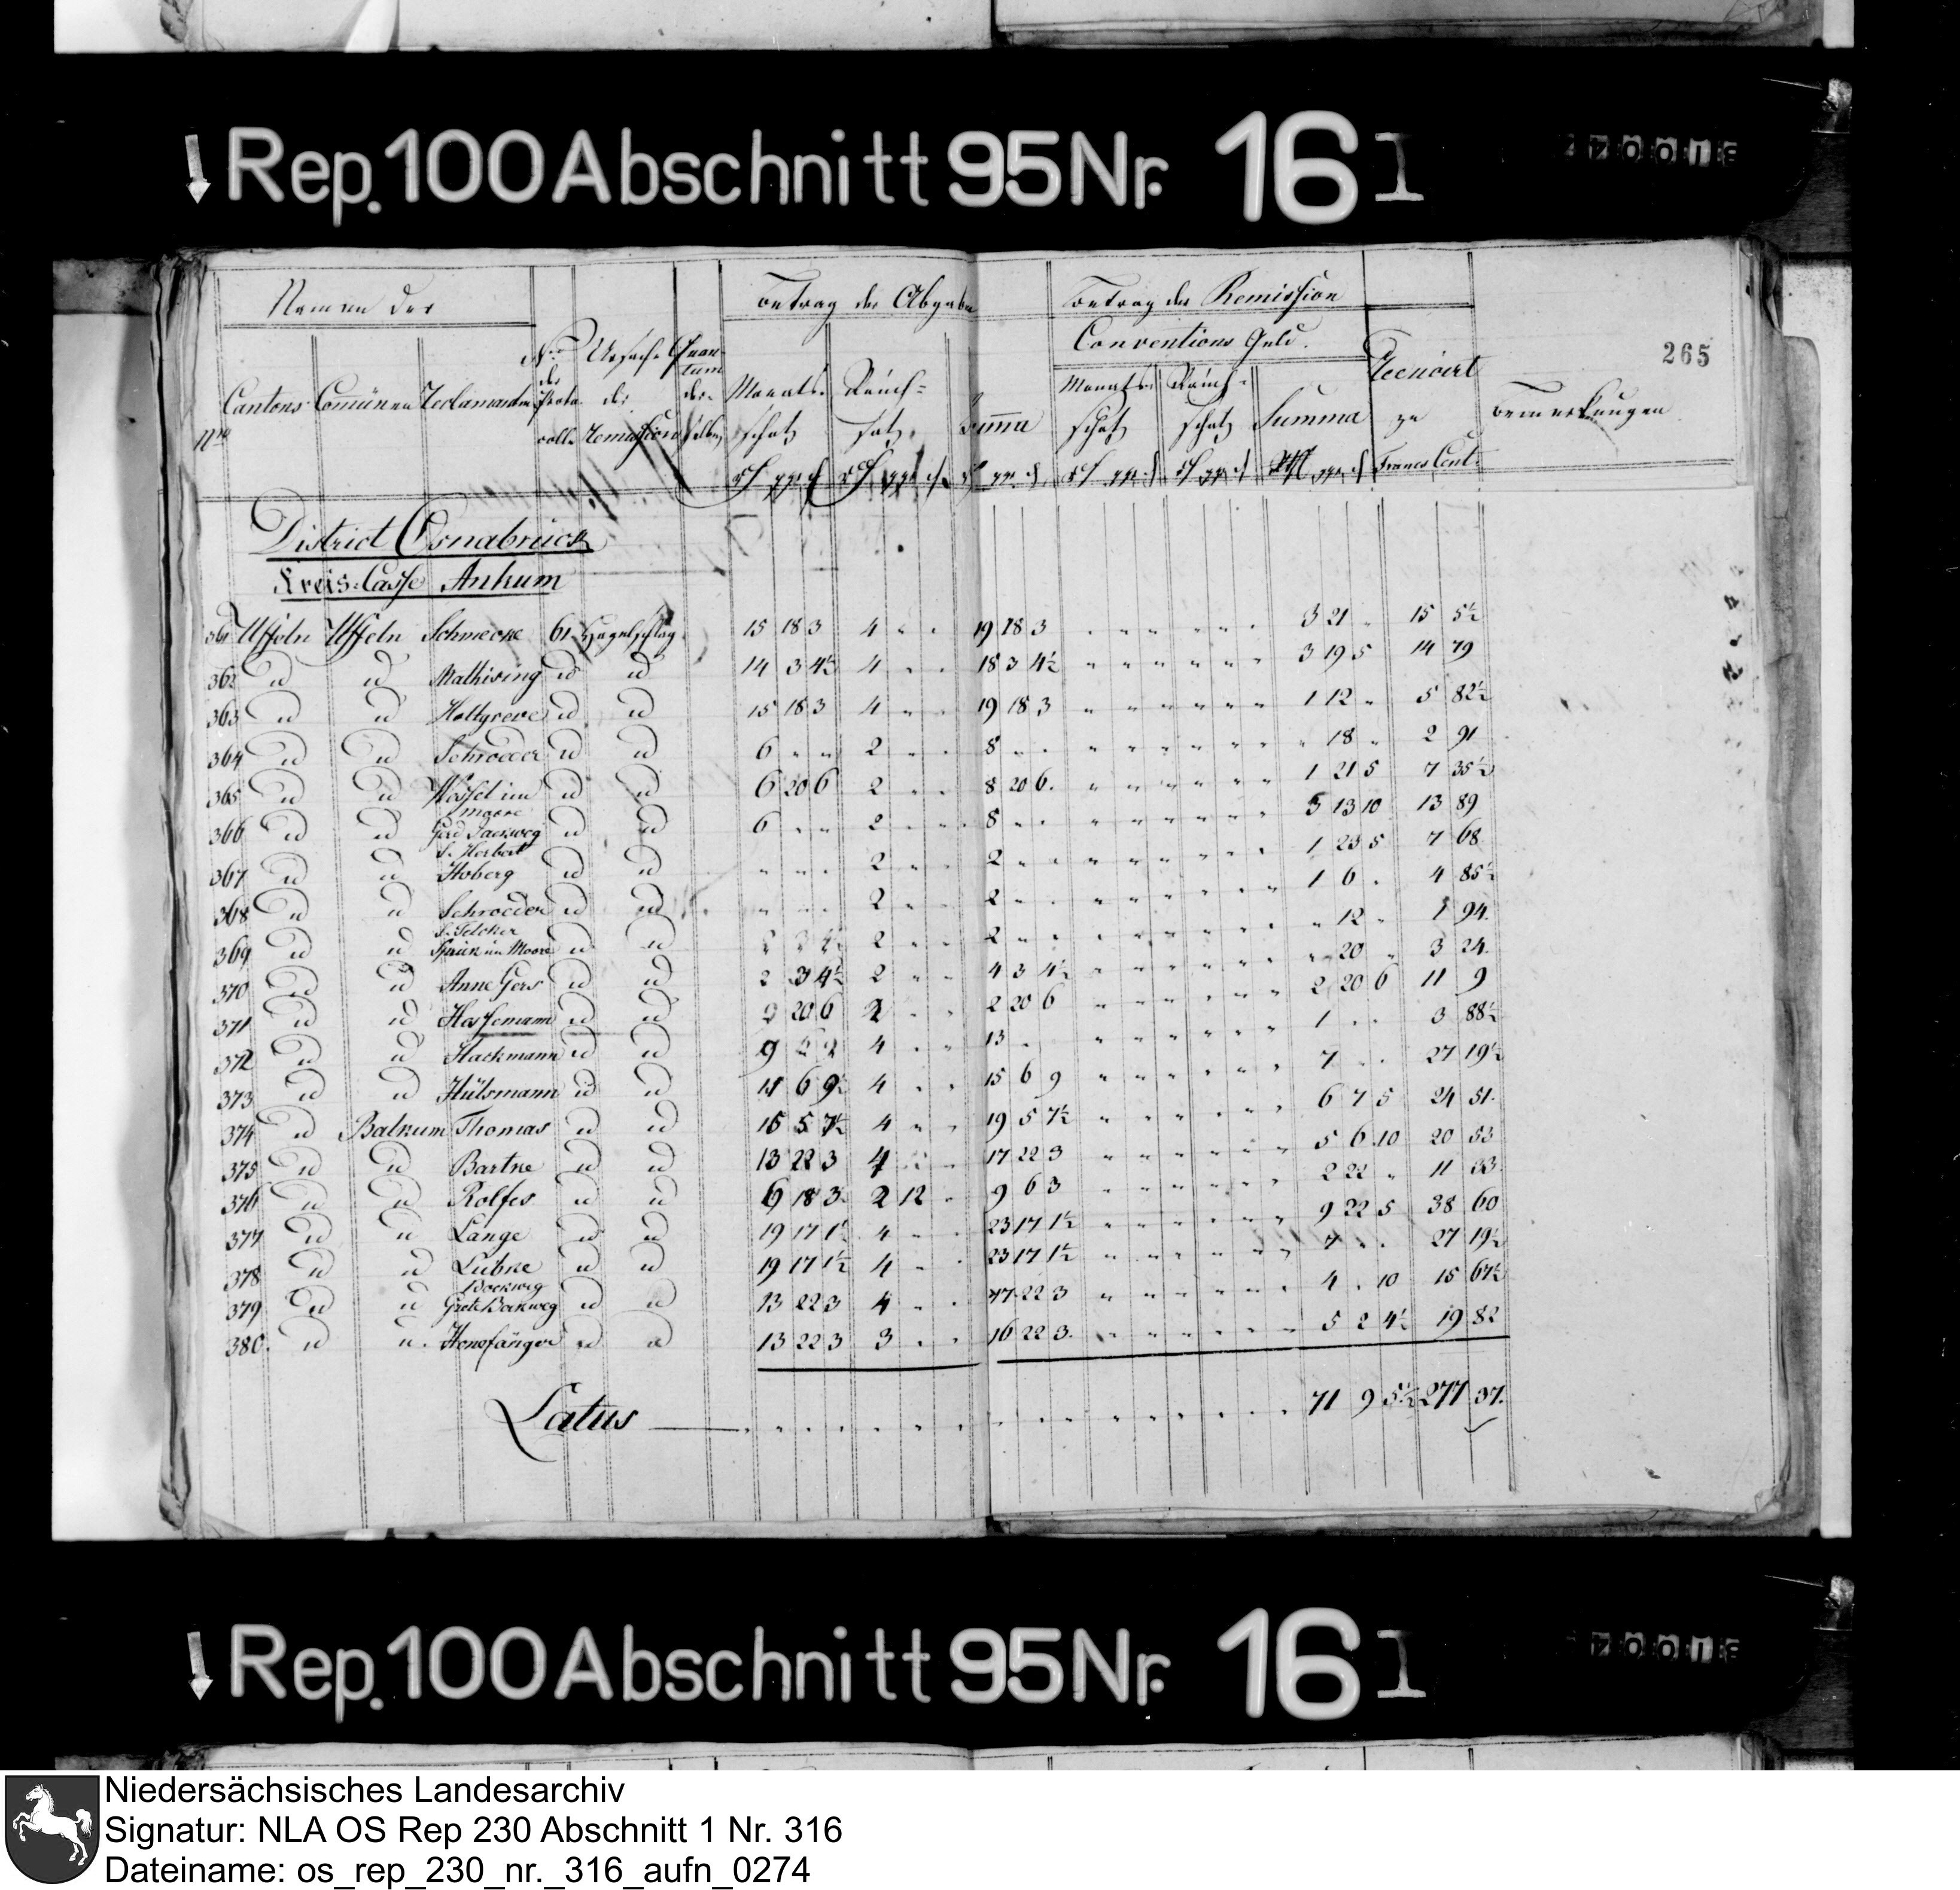 Rep. 100 Abschnitt 95 Nr. 16 I
265
Namen der
Betrag der Abgaben
Betrag der Remission
Conventions Geld.
Nro Cantons Comünen Reclamanten Nro des Protocolls Ursache der Remission Quantum derselben Monatsschatz Rauchschatz Summa Monatsschatz Rauchschatz Summa Reducirt zu Bemerkungen
Francs Cent.
District Osnabrück
Kreis-Casse Ankum
361 Uffeln Uffeln Schmecke 61 Hagelschlag 15 18 3 4 " " 19 18 3 3 21 " 15 5½
362 id id Mathising id id 14 3 4½ 4 " " 18 3 4½ 3 19 5 14 79
363 id id Holtgreve id id 15 18 3 4 " " 19 18 3 1 12 " 5 82½
364 id id Schroeder id id 6 " " 2 " " 8 " " " 18 " 2 91
365 id id Wessel im Moore id id 6 20 6 2 " " 8 20 6. 1 21 5 7 35½
366 id id Gerd id id 6 " " 2 " " 8 " " 3 13 10 13 89
367 id id S. Herbert Hoberg id id " " " 2 " " 2 " " 1 23 5 7 68
368 id id Schroeder id id " " " 2 " " 2 " " 1 6 " 4 85½
369 id id im Moore id id 2 " " 2 " " " 12 " 1 94.
370 id id Anne Gers id id 2 3 4½ 2 " " 4 3 4½ " 20 " 3 24.
371 id id Hassemann id id 20 6 2 20 6 2 20 6 11 9
372 id id Hackmann id id 9 4 " " 13 " 1 " " 3 88½
373 id id Hülsmann id id 6 9 4 " " 15 6 9 7 " " 27 19½
374 id Balkum Thomas id id 15 5 7½ 4 " " 19 5 7½ 6 7 5 24 51.
375 id id Bartke id id 13 22 3 4 " " 17 22 3 5 6 10 20 53
376 id id Rolfes id id 6 18 3 2 12 " 9 6 3 2 22 " 11 33
377 id id Lange id id 19 17 1½ 4 " " 23 17 1½ 9 22 5 38 60
378 id id Lübke id id 19 17 1½ 4 " " 23 17 1½ 7 " " 27 19½
379 id id Grote Bockweg id id 13 22 3 4 " " 17 22 3 4 " 10 15 67½
380. id id. Honofänger id id 13 22 3 3 " " 16 22 3. 5 2 4½ 19 82
Latus 71 9 5½ 277 37.
Rep. 100 Abschnitt 95 Nr. 16 I
Niedersächsisches Landesarchiv
Signatur: NLA OS Rep 230 Abschnitt 1 Nr. 316
Dateiname: os_rep_230_nr._316_aufn_0274